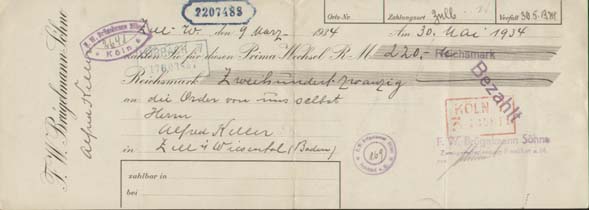 2207488
Orts-Nr
Zahlungsort Zell
Verfall 30.5.1934
Zell-W. den 9 März 1934
Am 30. Mai 1934
zahlen Sie für diesen Prima-Wechsel R.M. 220.-
Reichsmark
Reichsmark Zweihundertzwanzig
Bezahlt
an die Order von uns selbst
Herrn
Alfred Keller
in Zell i/Wiesental (Baden)
zahlbar in
bei
F. W. Brügelmann Söhne
Alfred Keller
F. W. Brügelmann Söhne
Köln
KÖLN
F. W. Brügelmann Söhne